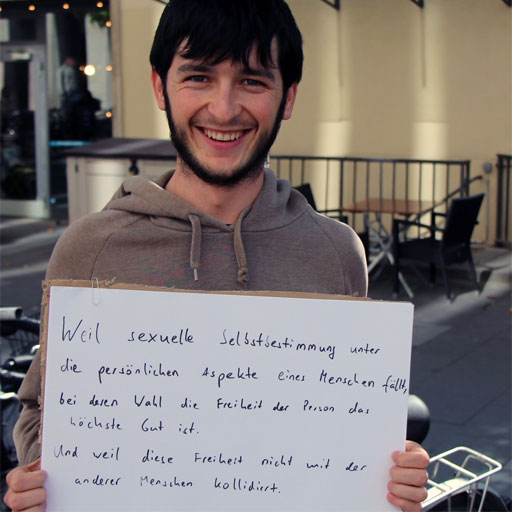 Weil sexuelle Selbstbestimmung unter
die persönlichen Aspekte eines Menschen fällt,
bei deren Wahl die Freiheit der Person das
höchste Gut ist.
Und weil diese Freiheit nicht mit der
anderer Menschen kollidiert.